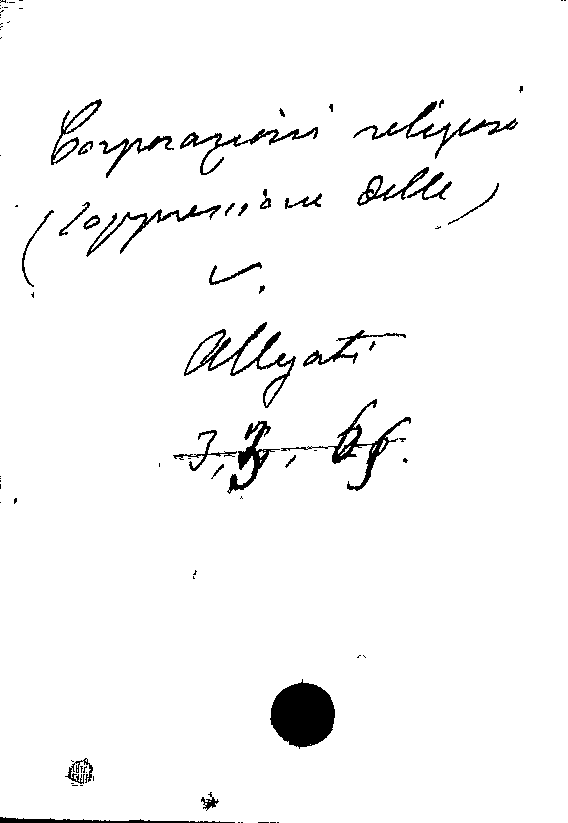 Corporazioni religiose
(Soppressione delle)
v.
Allegati
3, 3, 65.